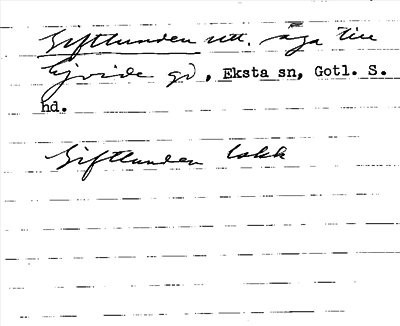 Giftlunden utt. äga till
Hjvide gd, Eksta sn, Gotl. S.
hd.
Giftlunden lokk